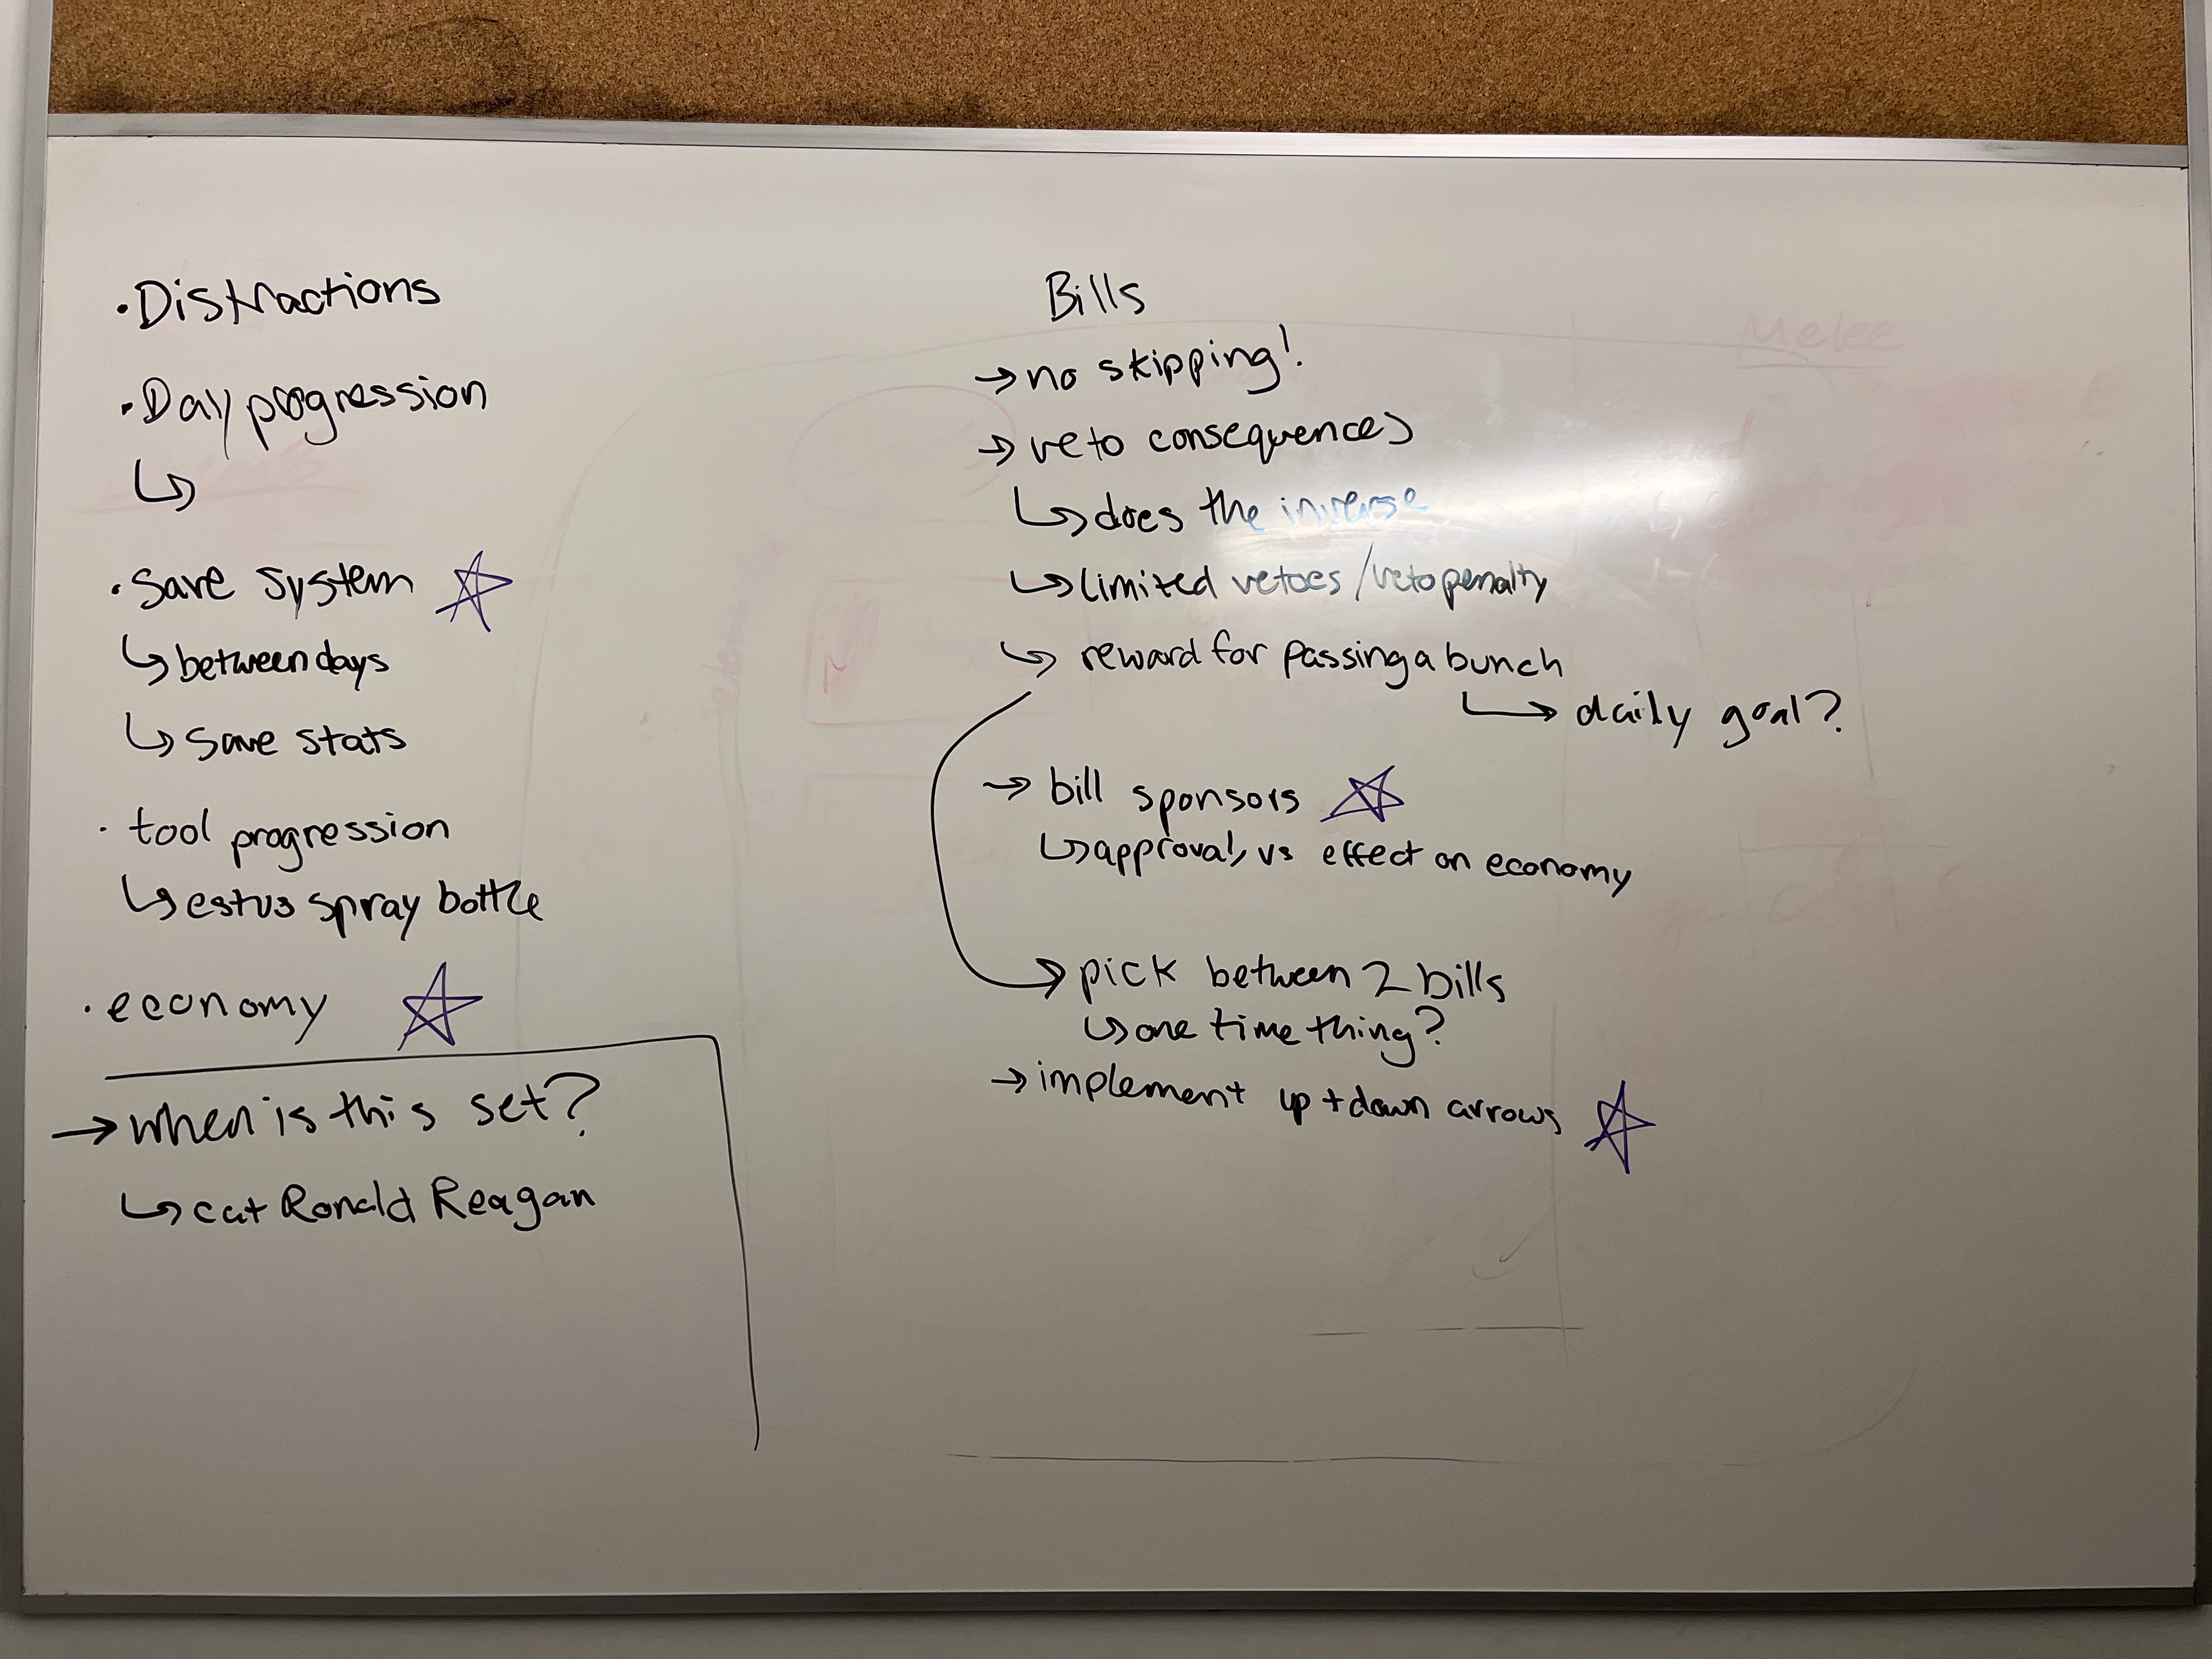 · Distractions
· Day progression
↳
· Save system ☆
↳ between days
↳ Save stats
· tool progression
↳ estus spray bottle
· economy ☆
→ when is this set?
↳ cat Ronald Reagan
Bills
→ no skipping!
→ veto consequences
↳ does the inverse
↳ limited vetoes / veto penalty
↳ reward for passing a bunch
↳ daily goal?
→ bill sponsors ☆
↳ approval, vs effect on economy
→ pick between 2 bills
↳ one time thing?
→ implement up + down arrows ☆
Melee